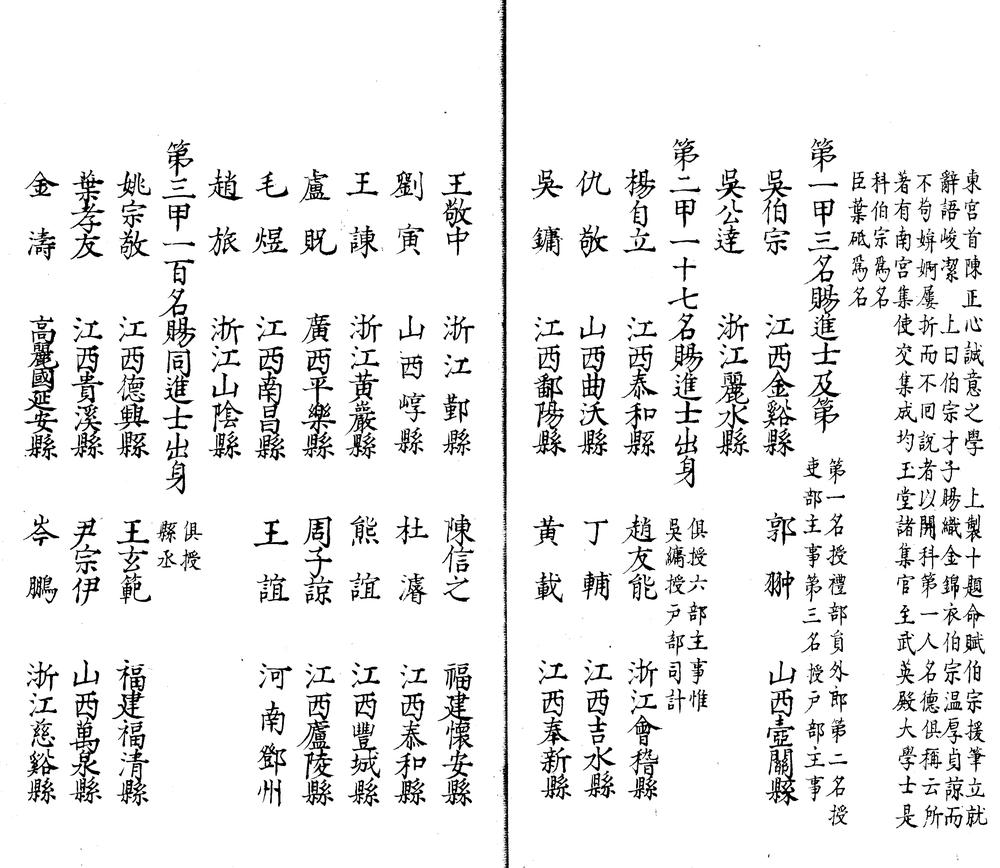 東宮首陳正心誠意之學　上製十題命賦伯宗援筆立就
辭語峻潔　上曰伯宗才子賜織金錦衣伯宗溫厚貞諒而
不苟媕婀屢折而不回說者以開科第一人名德俱稱云所
著有南宮集使交集成均玉堂諸集官至武英殿大學士是
科伯宗爲名
臣葉砥爲名
第一甲三名賜進士及第
第一名授禮部員外郎第二名授
吏部主事第三名授戶部主事
吳伯宗　江西金谿縣　郭翀　山西壺關縣
吳公達　浙江麗水縣
第二甲一十七名賜進士出身
俱授六部主事惟
吳鏞授戶部司計
楊自立　江西泰和縣　趙友能　浙江會稽縣
仇敬　山西曲沃縣　丁輔　江西吉水縣
吳鏞　江西鄱陽縣　黃載　江西奉新縣
王敬中　浙江鄞縣　陳信之　福建懷安縣
劉寅　山西崞縣　杜濬　江西泰和縣
王諫　浙江黃巖縣　熊誼　江西豐城縣
盧貺　廣西平樂縣　周子諒　江西廬陵縣
毛煜　江西南昌縣　王誼　河南鄧州
趙旅　浙江山陰縣
第三甲一百名賜同進士出身
俱授
縣丞
姚宗敬　江西德興縣　王玄範　福建福清縣
葉孝友　江西貴溪縣　尹宗伊　山西萬泉縣
金濤　高麗國延安縣　岑鵬　浙江慈谿縣